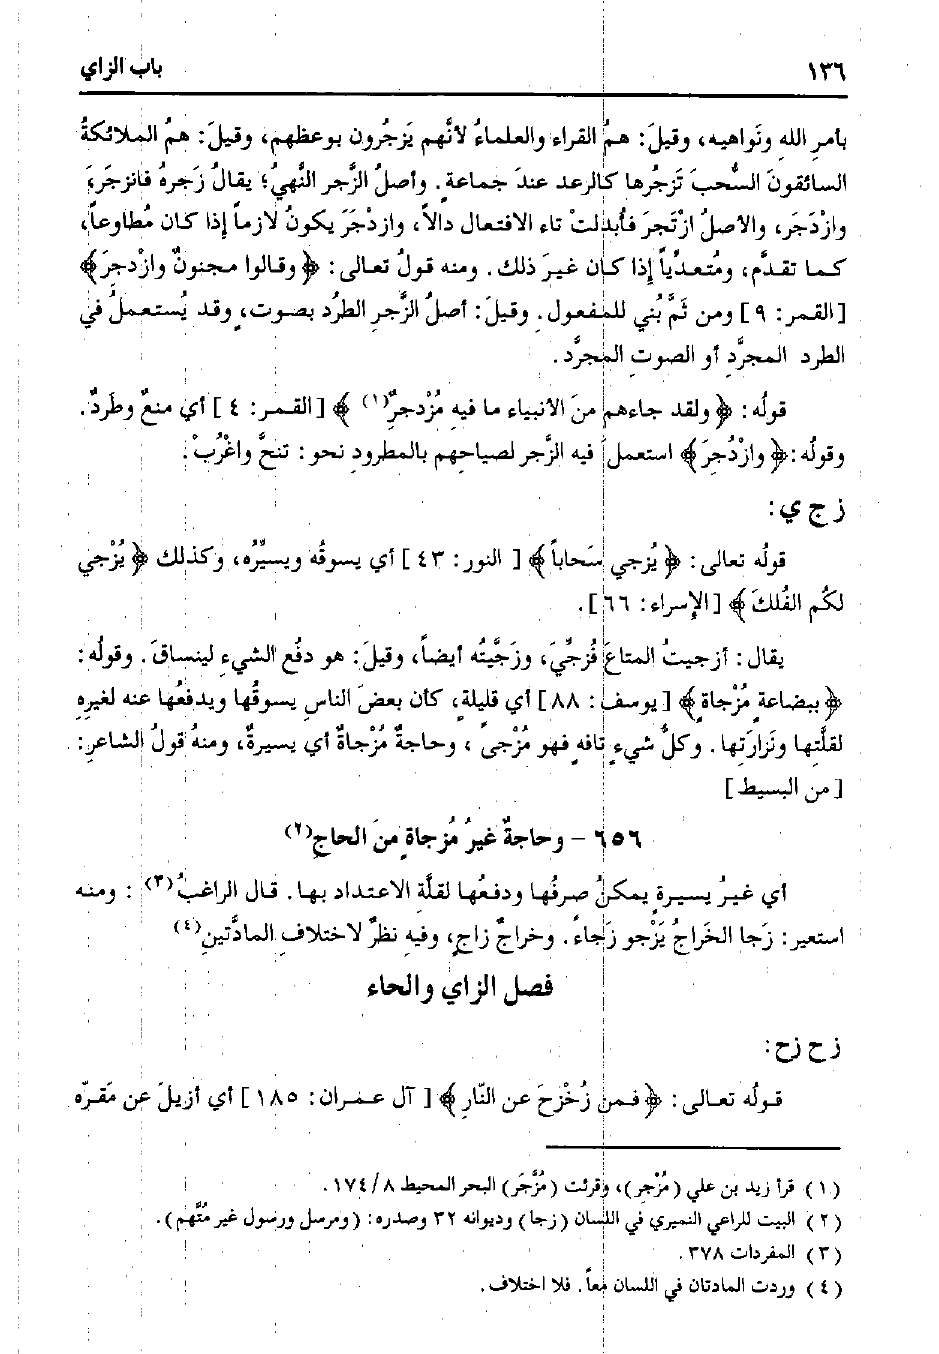 ١٣٦ باب الزاي
بأمرِ اللهِ ونَواهيه، وقيلَ: همُ القراء والعلماءُ لأنَّهم يَزجُرون بوعظهم، وقيلَ: همُ الملائكةُ
السائقونَ السُّحبَ تَزجُرها كالرعد عندَ جماعة. وأصلُ الزَّجر النَّهيُ؛ يقالُ زَجره فانزجرَ،
وازْدَجَر، والأصلُ ازْتَجرَ فأُبدلتْ تاء الافتعال دالاً، وازدجَرَ يكونُ لازماً إذا كان مُطاوعاً،
كما تقدَّم، ومُتعدِّياً إذا كان غيرَ ذلك. ومنه قولُ تعالى: ﴿وقالوا مجنونٌ وازْدجرَ﴾
[القمر: ٩] ومن ثَمَّ بُني للمفعول. وقيلَ: أصلُ الزَّجر الطرْد بصوت، وقد يُستعملُ في
الطرد المجرَّدِ أو الصوتِ المجرَّد.
قولُه: ﴿ولقد جاءهم منَ الأنبياء ما فيه مُزْدجرٌ(١)﴾ [القمر: ٤] أي منعٌ وطردٌ.
وقولُه: ﴿وازْدُجِرَ﴾ استعمل فيه الزَّجر لصياحهم بالمطرودِ نحو: تنحَّ واغْرُبْ.
ز ج ي:
قولُه تعالى: ﴿يُزجي سَحاباً﴾ [النور: ٤٣] أي يسوقُه ويسيِّرُه، وكذلك ﴿يُزْجي
لكُم الفُلكَ﴾ [الإسراء: ٦٦].
يقال: أزجيتُ المتاعَ فزُجِّيَ، وزَجَّيتُه أيضاً، وقيلَ: هو دفْع الشيءِ لينساقَ. وقولُه:
﴿ببضاعةٍ مُزْجاةٍ﴾ [يوسف: ٨٨] أي قليلةٍ، كأن بعضَ الناسِ يسوقُها ويدفعُها عنه لغيرِهِ
لقلَّتِها ونَزارَتِها. وكلُّ شيءٍ تافهٍ فهو مُزْجىً، وحاجةٌ مُزْجاةٌ أي يسيرةٌ، ومنهُ قولُ الشاعرِ:
[من البسيط]
٦٥٦ – وحاجةٌ غيرُ مُزجاةٍ منَ الحاجِ(٢)
أي غيرُ يسيرةٍ يمكنُ صرفُها ودفعُها لقلَّةِ الاعتداد بها. قال الراغبُ(٣): ومنه
استعير: زَجا الخَراجُ يَزْجو زَجاءً. وخراجٌ زاجٍ، وفيهِ نظرٌ لاختلافِ المادَّتينِ(٤)
فصل الزاي والحاء
ز ح زح:
قولُه تعالى: ﴿فمن زُحْزِحَ عن النّارِ﴾ [آل عمران: ١٨٥] أي أزيلَ عن مَقرّه
(١) قرأ زيد بن علي (مُزْجر)، وقرئت (مُزَّجَر) البحر المحيط ٨/ ١٧٤.
(٢) البيت للراعي النميري في اللسان (زجا) وديوانه ٣٢ وصدره: (ومرسل ورسول غير مُتَّهم).
(٣) المفردات ٣٧٨.
(٤) وردت المادتان في اللسان معاً. فلا اختلاف.